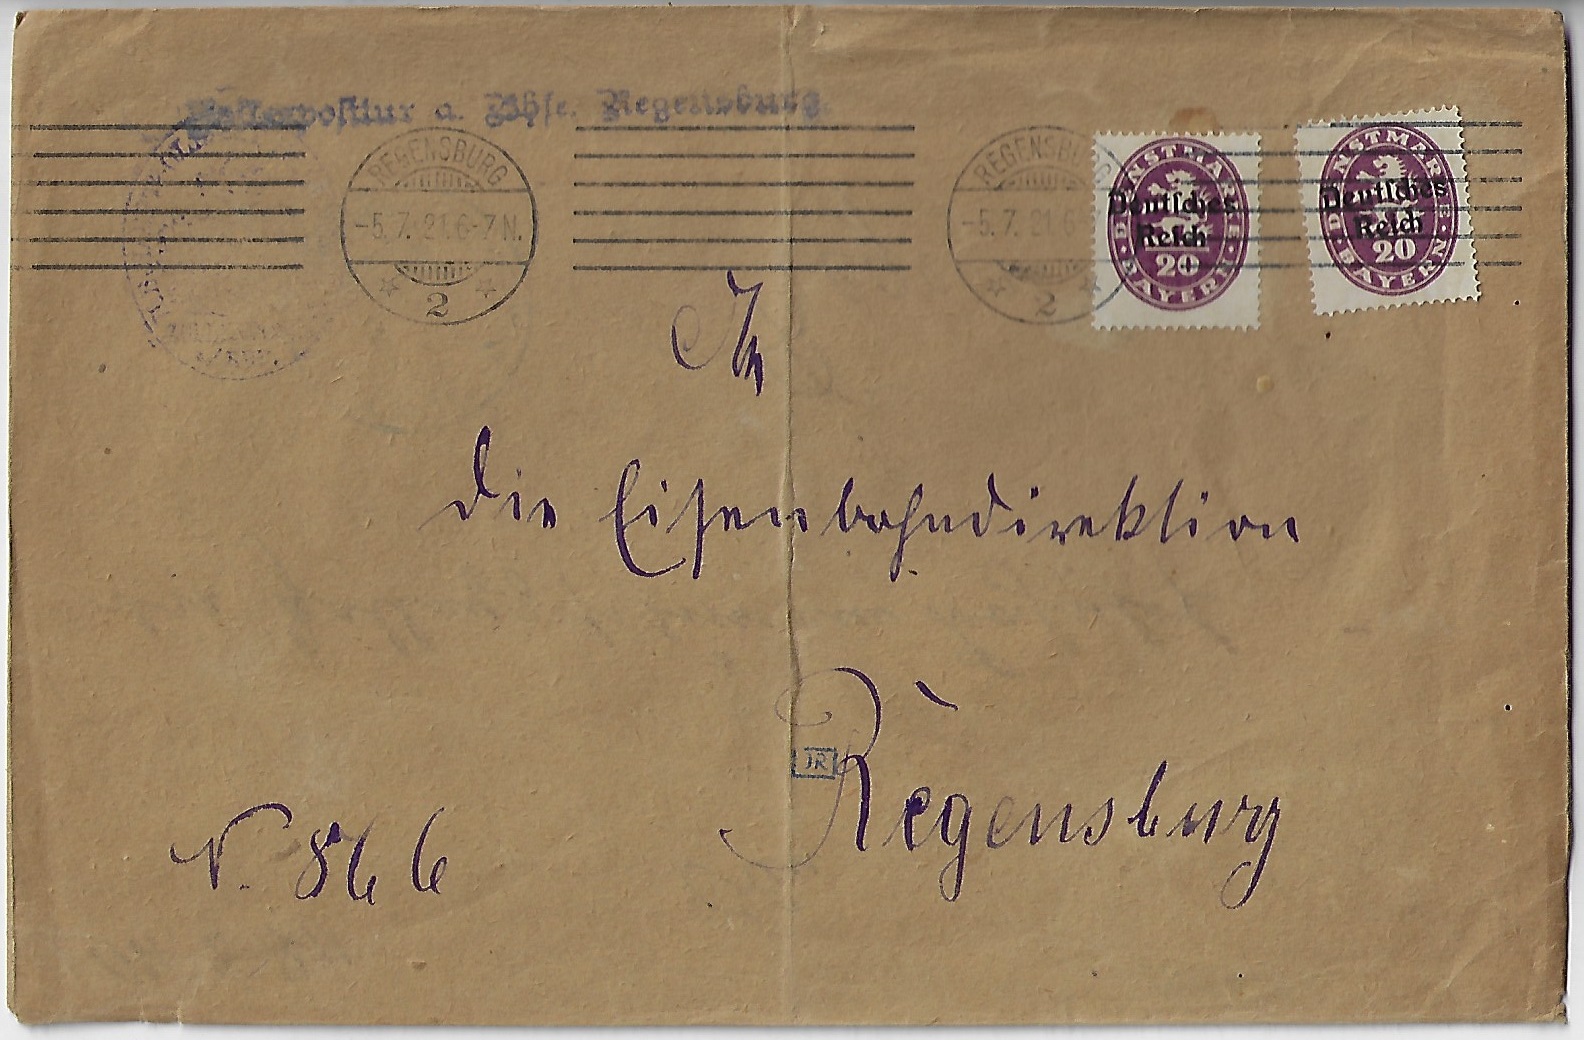 a. Bhfe. Regensburg
REGENSBURG
-5.7.21.6-7N.
2
REGENSBURG
-5.7.21.6
2
DIENSTMARKE
Deutsches
Reich
20
BAYERN
DIENSTMARKE
Deutsches
Reich
20
BAYERN
An
die Eisenbahndirektion
Regensburg
JR
N. 866